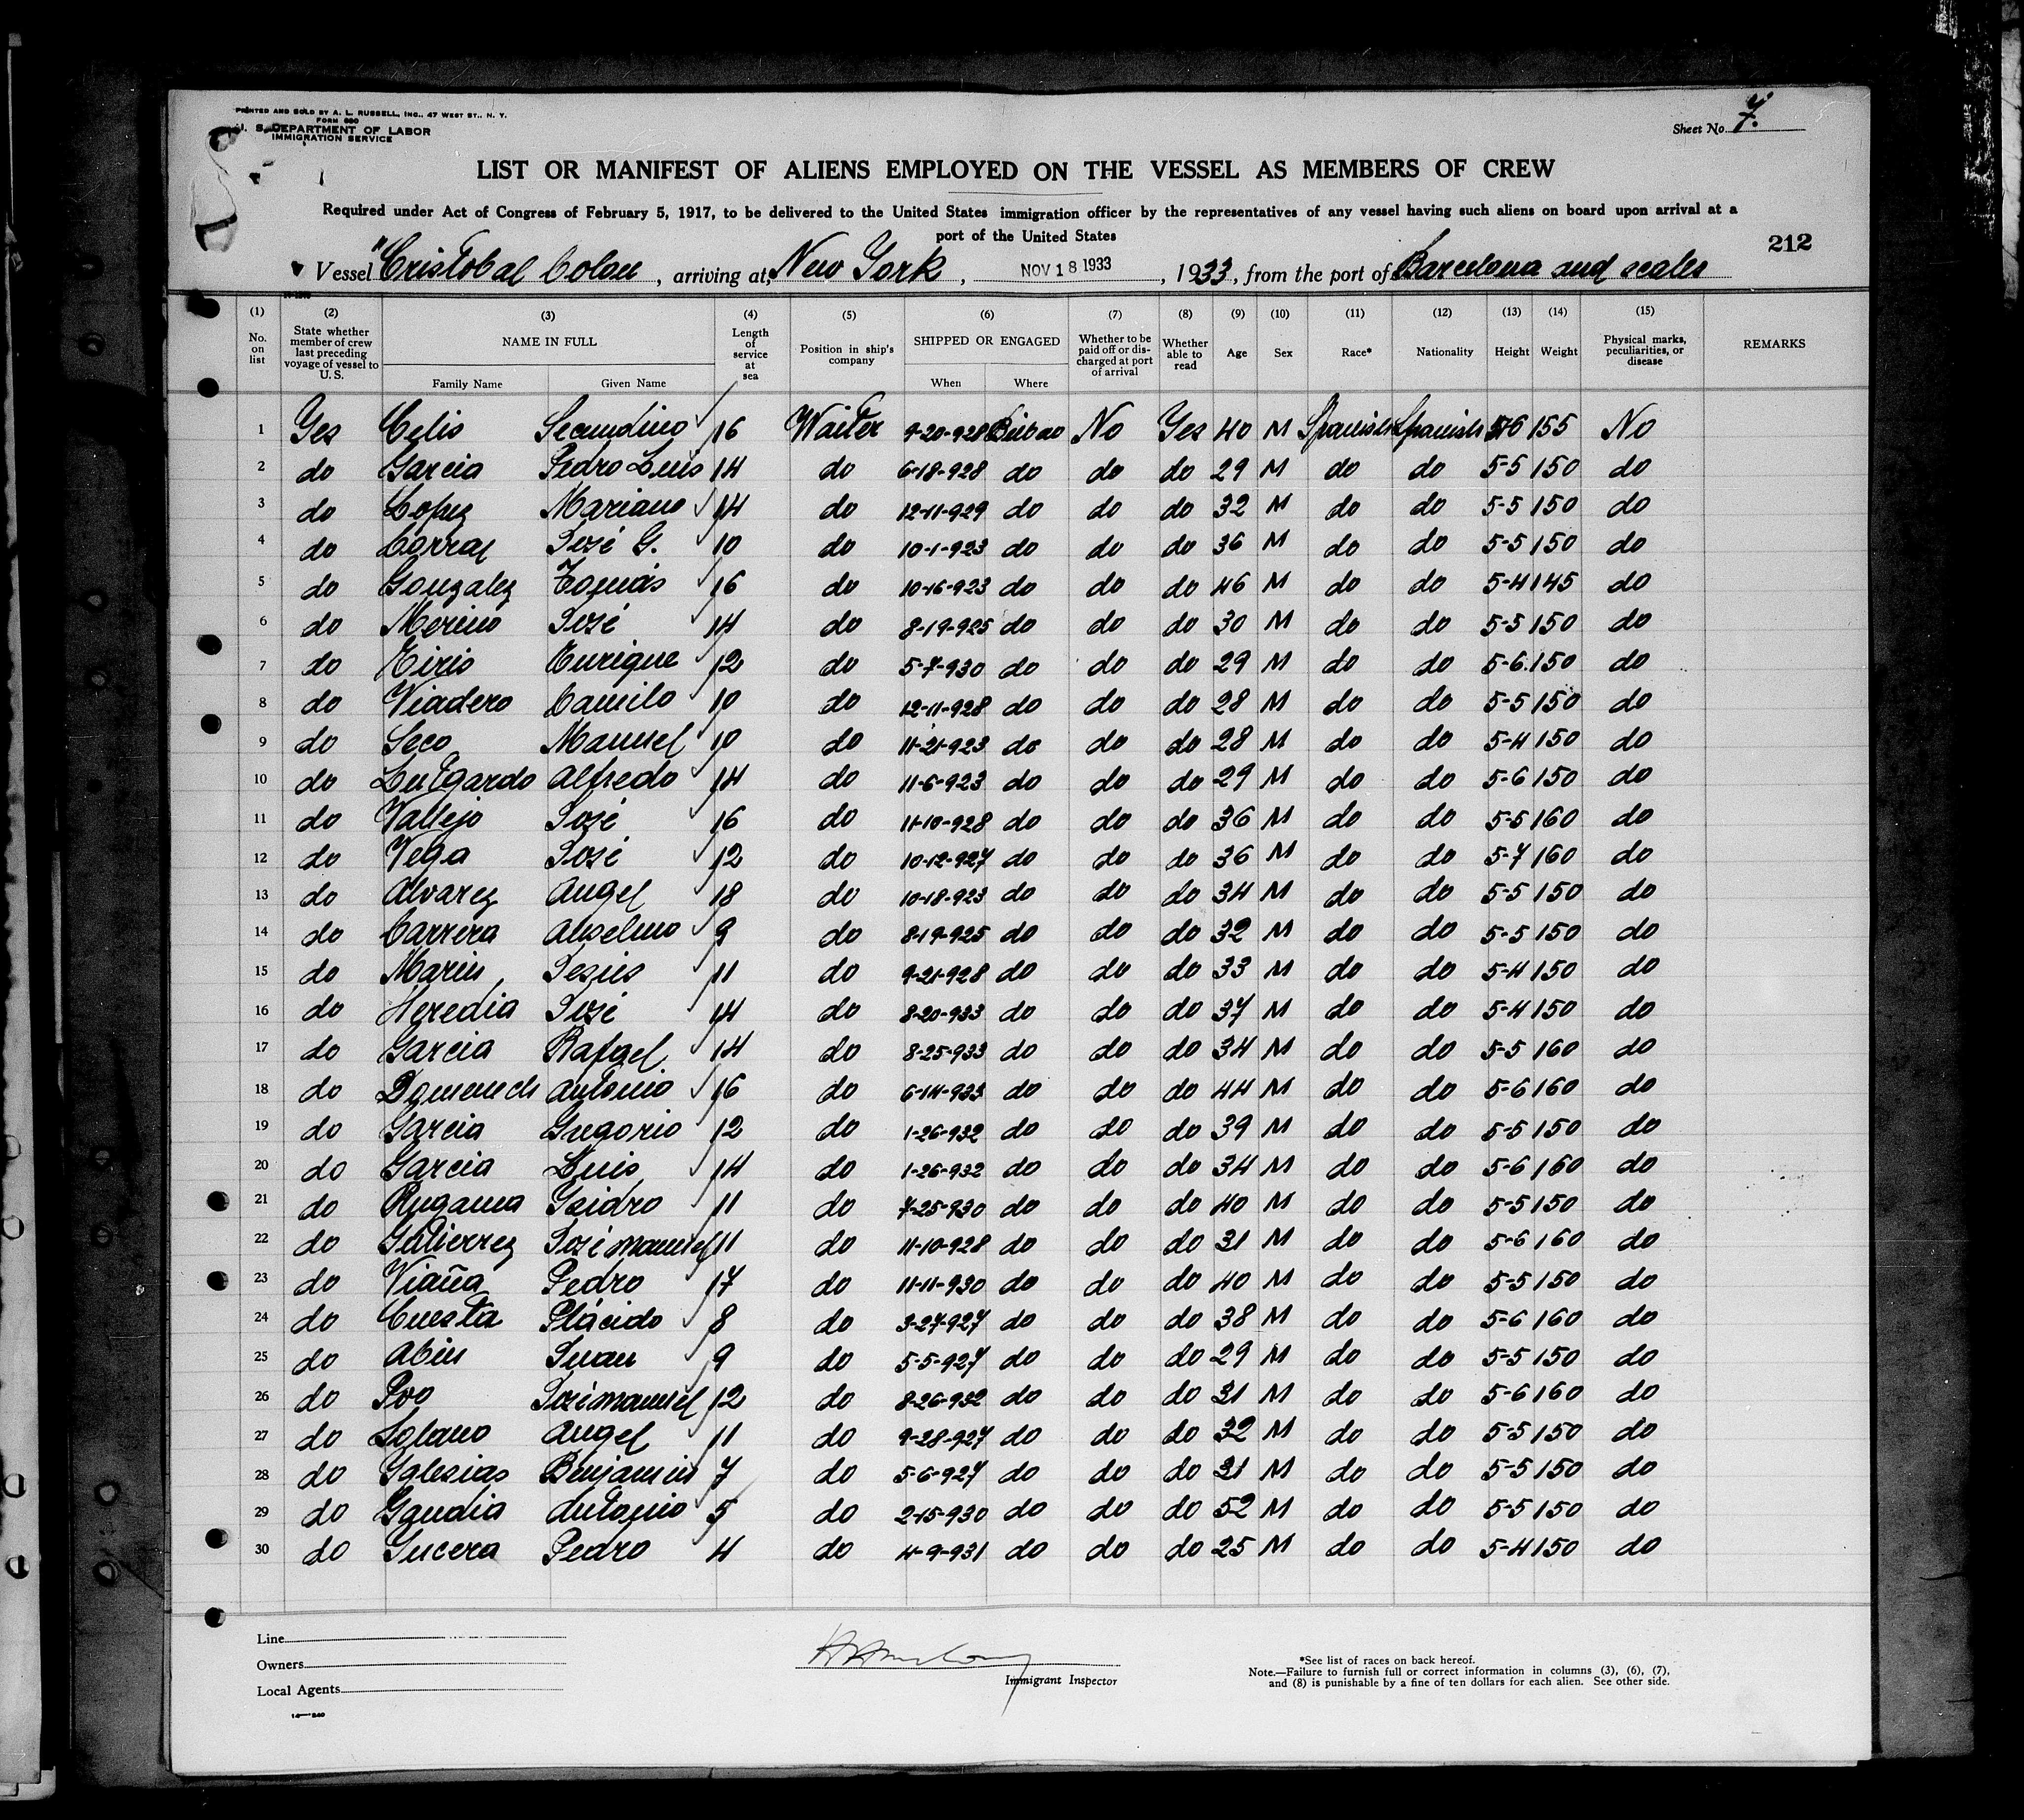 PRINTED AND SOLD BY A. L. RUSSELL, INC., 47 WEST ST., N. Y.
FORM 680
U. S. DEPARTMENT OF LABOR
IMMIGRATION SERVICE
Sheet No. 7.
LIST OR MANIFEST OF ALIENS EMPLOYED ON THE VESSEL AS MEMBERS OF CREW
Required under Act of Congress of February 5, 1917, to be delivered to the United States immigration officer by the representatives of any vessel having such aliens on board upon arrival at a
port of the United States
212
Vessel "Cristobal Colon, arriving at New York, NOV 18 1933, 1933, from the port of Barcelona and scales
(1) (2) (3) (4) (5) (6) (7) (8) (9) (10) (11) (12) (13) (14) (15)
No. on list State whether member of crew last preceding voyage of vessel to U. S. NAME IN FULL Length of service at sea Position in ship's company SHIPPED OR ENGAGED Whether to be paid off or discharged at port of arrival Whether able to read Age Sex Race* Nationality Height Weight Physical marks, peculiarities, or disease REMARKS
Family Name Given Name When Where
1 Yes Celis Secundino 16 Waiter 9-20-928 Bilbao No Yes 40 M Spanish Spanish 5-6 155 No
2 do Garcia Pedro Luis 14 do 6-18-928 do do do 29 M do do 5-5 150 do
3 do Lopez Mariano 14 do 12-11-929 do do do 32 M do do 5-5 150 do
4 do Corral José G. 10 do 10-1-923 do do do 36 M do do 5-5 150 do
5 do Gonzalez Tomás 16 do 10-16-923 do do do 46 M do do 5-4 145 do
6 do Merino José 14 do 8-19-925 do do do 30 M do do 5-5 150 do
7 do Eiris Enrique 12 do 5-7-930 do do do 29 M do do 5-6 150 do
8 do Viadero Camilo 10 do 12-11-928 do do do 28 M do do 5-5 150 do
9 do Seco Manuel 10 do 11-21-923 do do do 28 M do do 5-4 150 do
10 do Lutgardo Alfredo 14 do 11-6-923 do do do 29 M do do 5-6 150 do
11 do Vallejo José 16 do 11-10-928 do do do 36 M do do 5-5 160 do
12 do Vega José 12 do 10-12-927 do do do 36 M do do 5-7 160 do
13 do Alvarez Angel 18 do 10-18-923 do do do 34 M do do 5-5 150 do
14 do Carrera Anselmo 9 do 8-19-925 do do do 32 M do do 5-5 150 do
15 do Marin Jesús 11 do 9-21-928 do do do 33 M do do 5-4 150 do
16 do Heredia José 14 do 8-20-933 do do do 37 M do do 5-4 150 do
17 do Garcia Rafael 14 do 8-25-933 do do do 34 M do do 5-5 160 do
18 do Domenech Antonio 16 do 6-14-933 do do do 44 M do do 5-6 160 do
19 do Garcia Gregorio 12 do 1-26-932 do do do 39 M do do 5-5 150 do
20 do Garcia Luis 14 do 1-26-932 do do do 34 M do do 5-6 160 do
21 do Rugama Isidro 11 do 7-25-930 do do do 40 M do do 5-5 150 do
22 do Gutierrez José Manuel 11 do 11-10-928 do do do 31 M do do 5-6 160 do
23 do Viaña Pedro 17 do 11-11-930 do do do 40 M do do 5-5 150 do
24 do Cuesta Plácido 8 do 3-27-927 do do do 38 M do do 5-6 160 do
25 do Abin Juan 9 do 5-5-927 do do do 29 M do do 5-5 150 do
26 do Poo José Manuel 12 do 8-26-932 do do do 31 M do do 5-6 160 do
27 do Solano Angel 11 do 9-28-927 do do do 32 M do do 5-5 150 do
28 do Yglesias Benjamin 7 do 5-6-927 do do do 31 M do do 5-5 150 do
29 do Gandia Antonio 5 do 2-15-930 do do do 52 M do do 5-5 150 do
30 do Lucera Pedro 4 do 4-9-931 do do do 25 M do do 5-4 150 do
Line
Owners
Local Agents
Immigrant Inspector
*See list of races on back hereof.
Note.—Failure to furnish full or correct information in columns (3), (6), (7),
and (8) is punishable by a fine of ten dollars for each alien. See other side.